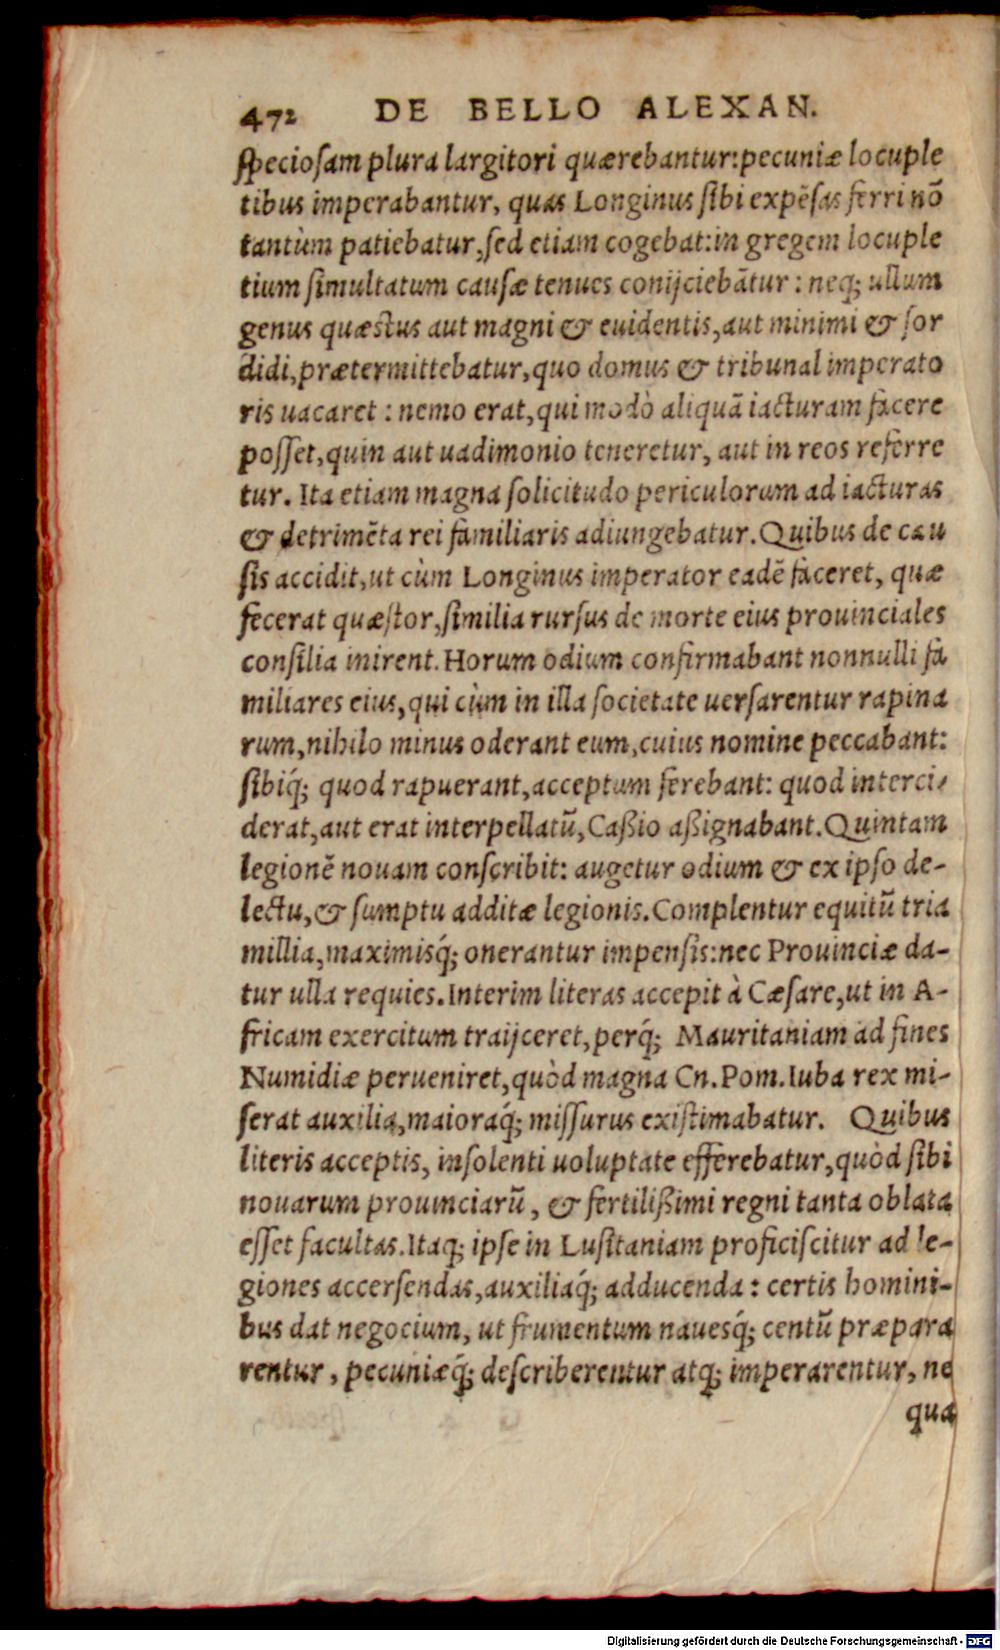 472 DE BELLO ALEXAN.
ſpecioſam plura largitori quærebantur:pecuniæ locuple
tibus imperabantur, quas Longinus ſibi expẽſas ferri nõ
tantùm patiebatur,ſed etiam cogebat:in gregem locuple
tium ſimultatum cauſæ tenues conijciebãtur : neq; ullum
genus quæstus aut magni & euidentis,aut minimi & ſor
didi,prætermittebatur,quo domus & tribunal imperato
ris uacaret : nemo erat,qui modò aliquã iacturam facere
poſſet,quin aut uadimonio teneretur, aut in reos referre
tur. Ita etiam magna ſolicitudo periculorum ad iacturas
& detrimẽta rei familiaris adiungebatur. Quibus de cau
ſis accidit,ut cùm Longinus imperator eadẽ faceret, quæ
fecerat quæſtor,ſimilia rurſus de morte eius prouinciales
conſilia inirent. Horum odium confirmabant nonnulli fa
miliares eius,qui cùm in illa ſocietate uerſarentur rapina
rum,nihilo minus oderant eum,cuius nomine peccabant:
ſibiq́; quod rapuerant,acceptum ferebant: quod interci-
derat,aut erat interpellatũ,Caßio aßignabant. Quintam
legionẽ nouam conſcribit: augetur odium & ex ipſo de-
lectu,& ſumptu additæ legionis. Complentur equitũ tria
millia,maximisq́; onerantur impenſis:nec Prouinciæ da-
tur ulla requies. Interim literas accepit à Cæſare,ut in A-
fricam exercitum traijceret,perq́; Mauritaniam ad fines
Numidiæ perueniret,quòd magna Cn. Pom. Iuba rex mi-
ſerat auxilia,maioraq́; miſſurus exiſtimabatur. Quibus
literis acceptis, inſolenti uoluptate efferebatur,quòd ſibi
nouarum prouinciarũ, & fertilißimi regni tanta oblata
eſſet facultas. Itaq; ipſe in Luſitaniam proficiſcitur ad le-
giones accerſendas,auxiliaq́; adducenda : certis homini-
bus dat negocium, ut frumentum naueſq́; centũ præpara
rentur, pecuniæq́; deſcriberentur atq; imperarentur, ne
qua
Digitalisierung gefördert durch die Deutsche Forschungsgemeinschaft - DFG